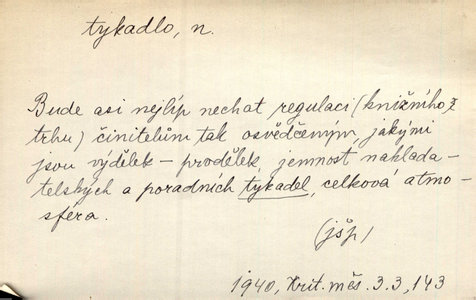 tykadlo, n.
Bude asi nejlíp nechat regulaci (knižního
trhu) činitelům tak osvědčeným, jakými
jsou výdělek – prodělek, jemnost naklada-
telských a poradních tykadel, celková atmo-
sféra.
(jšp)
1940, Krit. měs. 3.3, 143